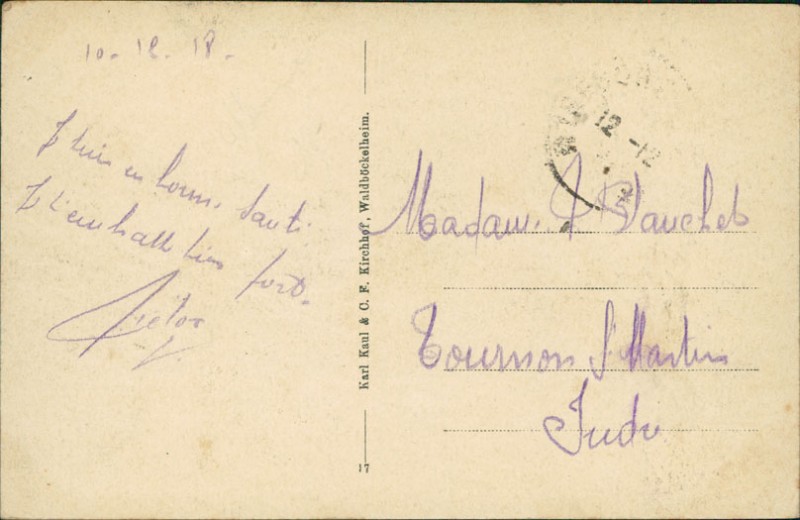 10-12-18-
Je suis en bonne santé
Je t'embrasse bien fort.
Victor
V.
Karl Kaul & C. F. Kirchhof, Waldböckelheim.
17
12-12
Madame P Dauchet
Tournon St Martin
Indre